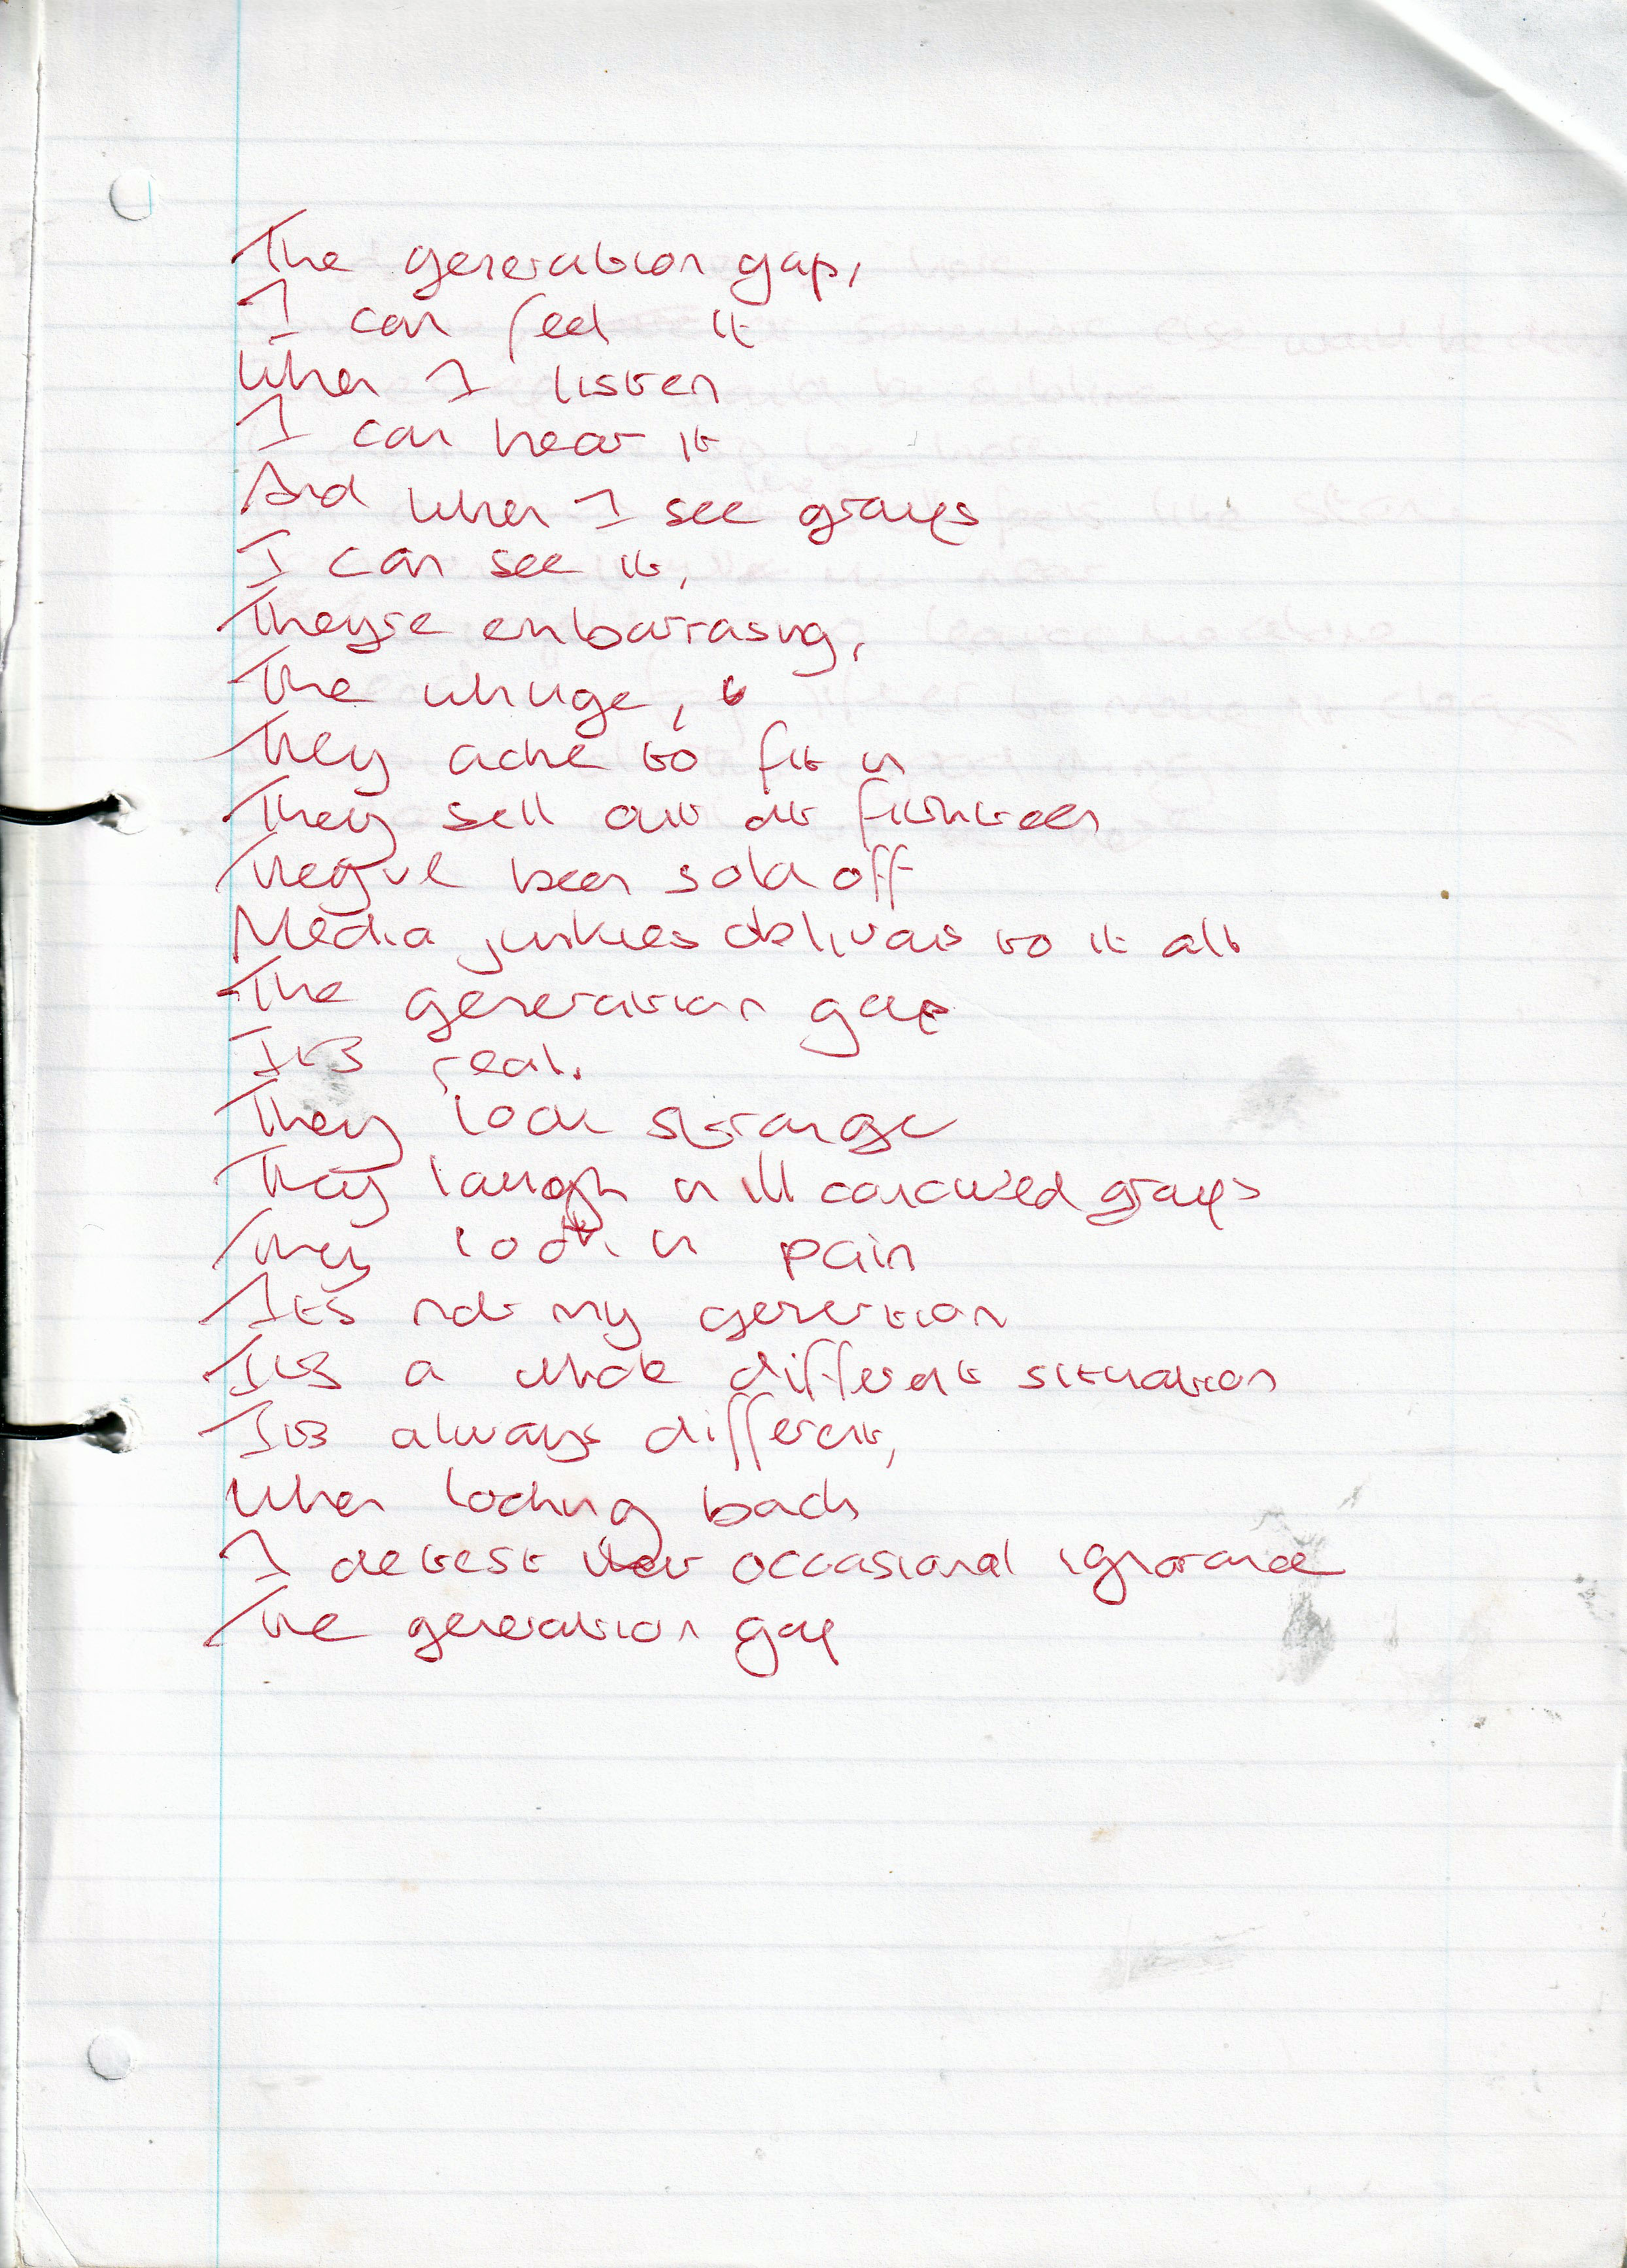 The generation gap,
I can feel it
When I listen
I can hear it
And when I see groups
I can see it,
They're embarrasing,
The whinge,
They ache to fit in
They sell out at fourteen
They've been sold off
Media junkies oblivious to it all
The generation gap
Its real.
They look strange
They laugh in ill conceived groups
They look in pain
It's not my generation
Its a whole different situation
Its always different,
When looking back
I detest their occasional ignorance
The generation gap